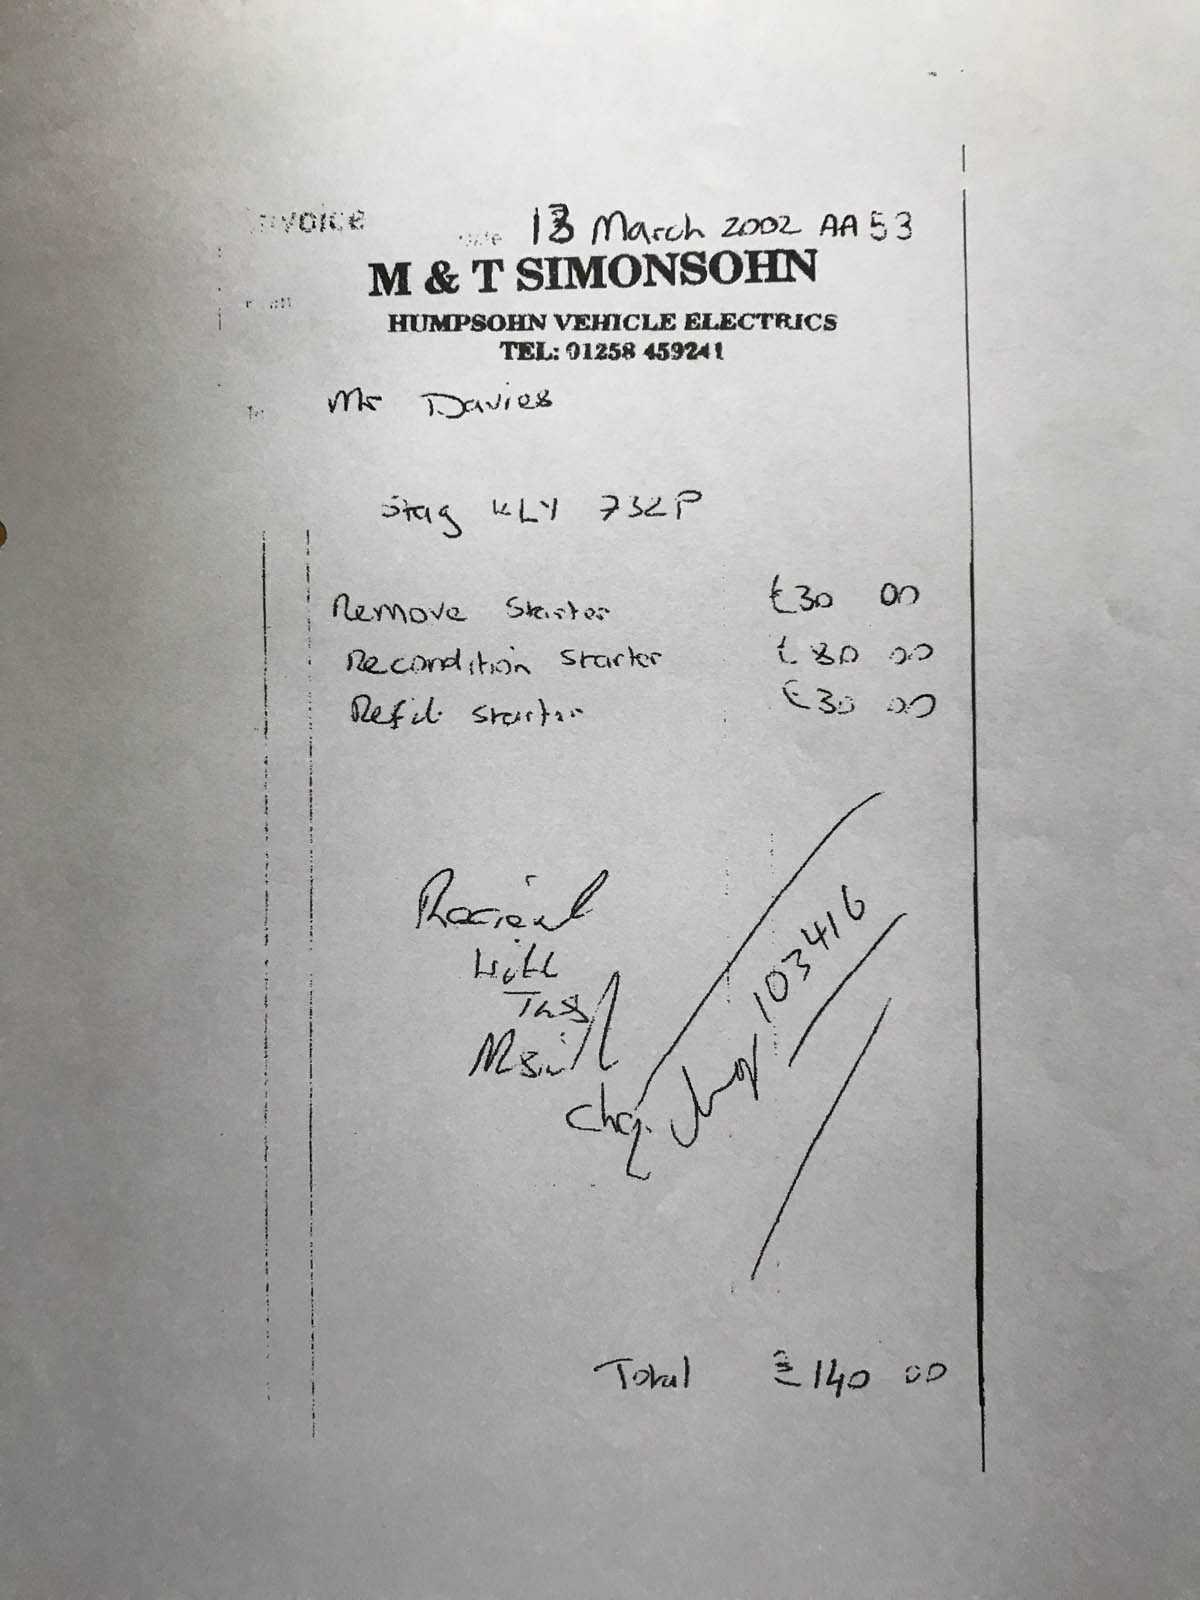 Invoice
Date 13 March 2002 AA 53
M & T SIMONSOHN
HUMPSOHN VEHICLE ELECTRICS
TEL: 01258 459241
To Mr Davies
Stag KLY 732P
Remove Starter £30 00
Recondition Starter £80 00
Refit Starter £30 00
With
Chq. 103416
Total £140 00